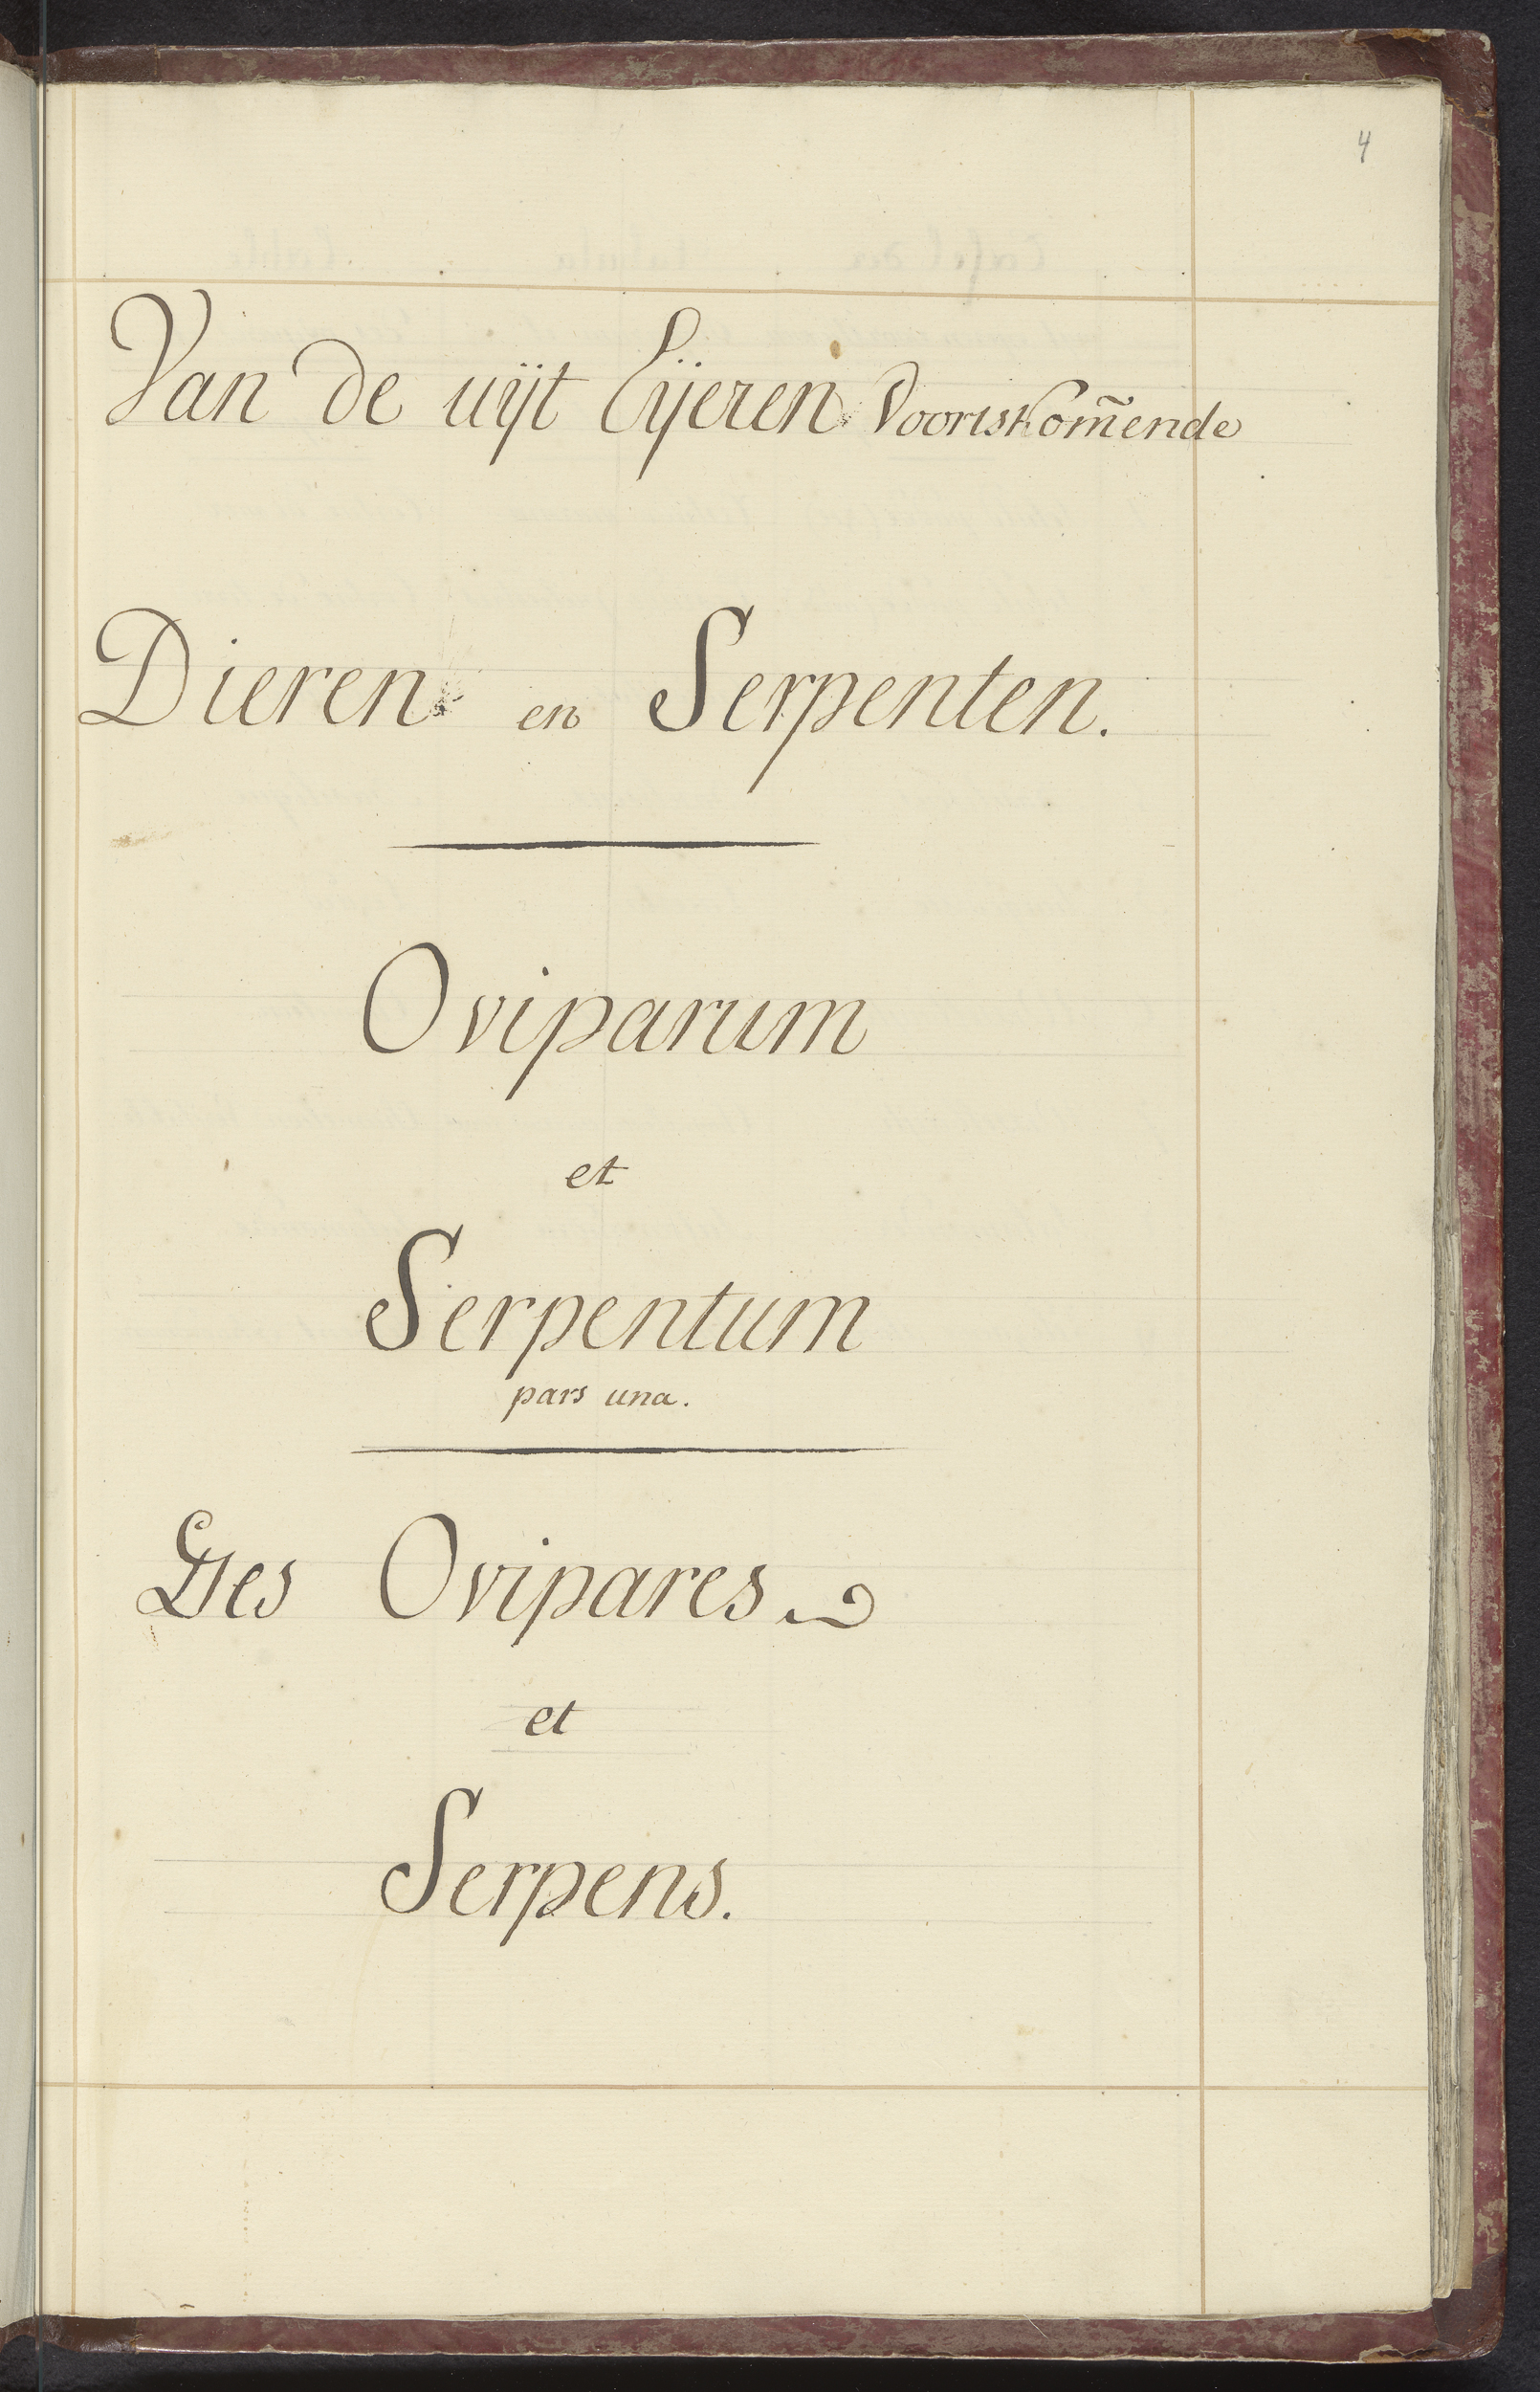 4
Van de uijt Eijeren Voortskom̃ende
Dieren en Serpenten.
Oviparum
et
Serpentum
pars una.
Des Ovipares
et
Serpens.